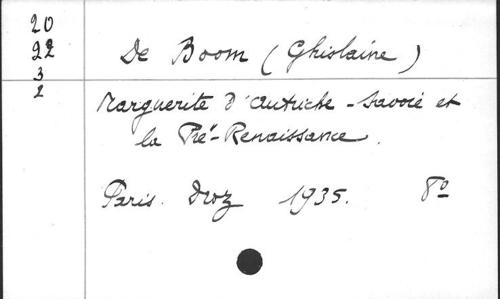 20
22
3
2
De Boom (Ghislaine)
Marguerite d'Autriche - Savoie et
la Pré-Renaissance.
Paris. Droz 1935. 8º